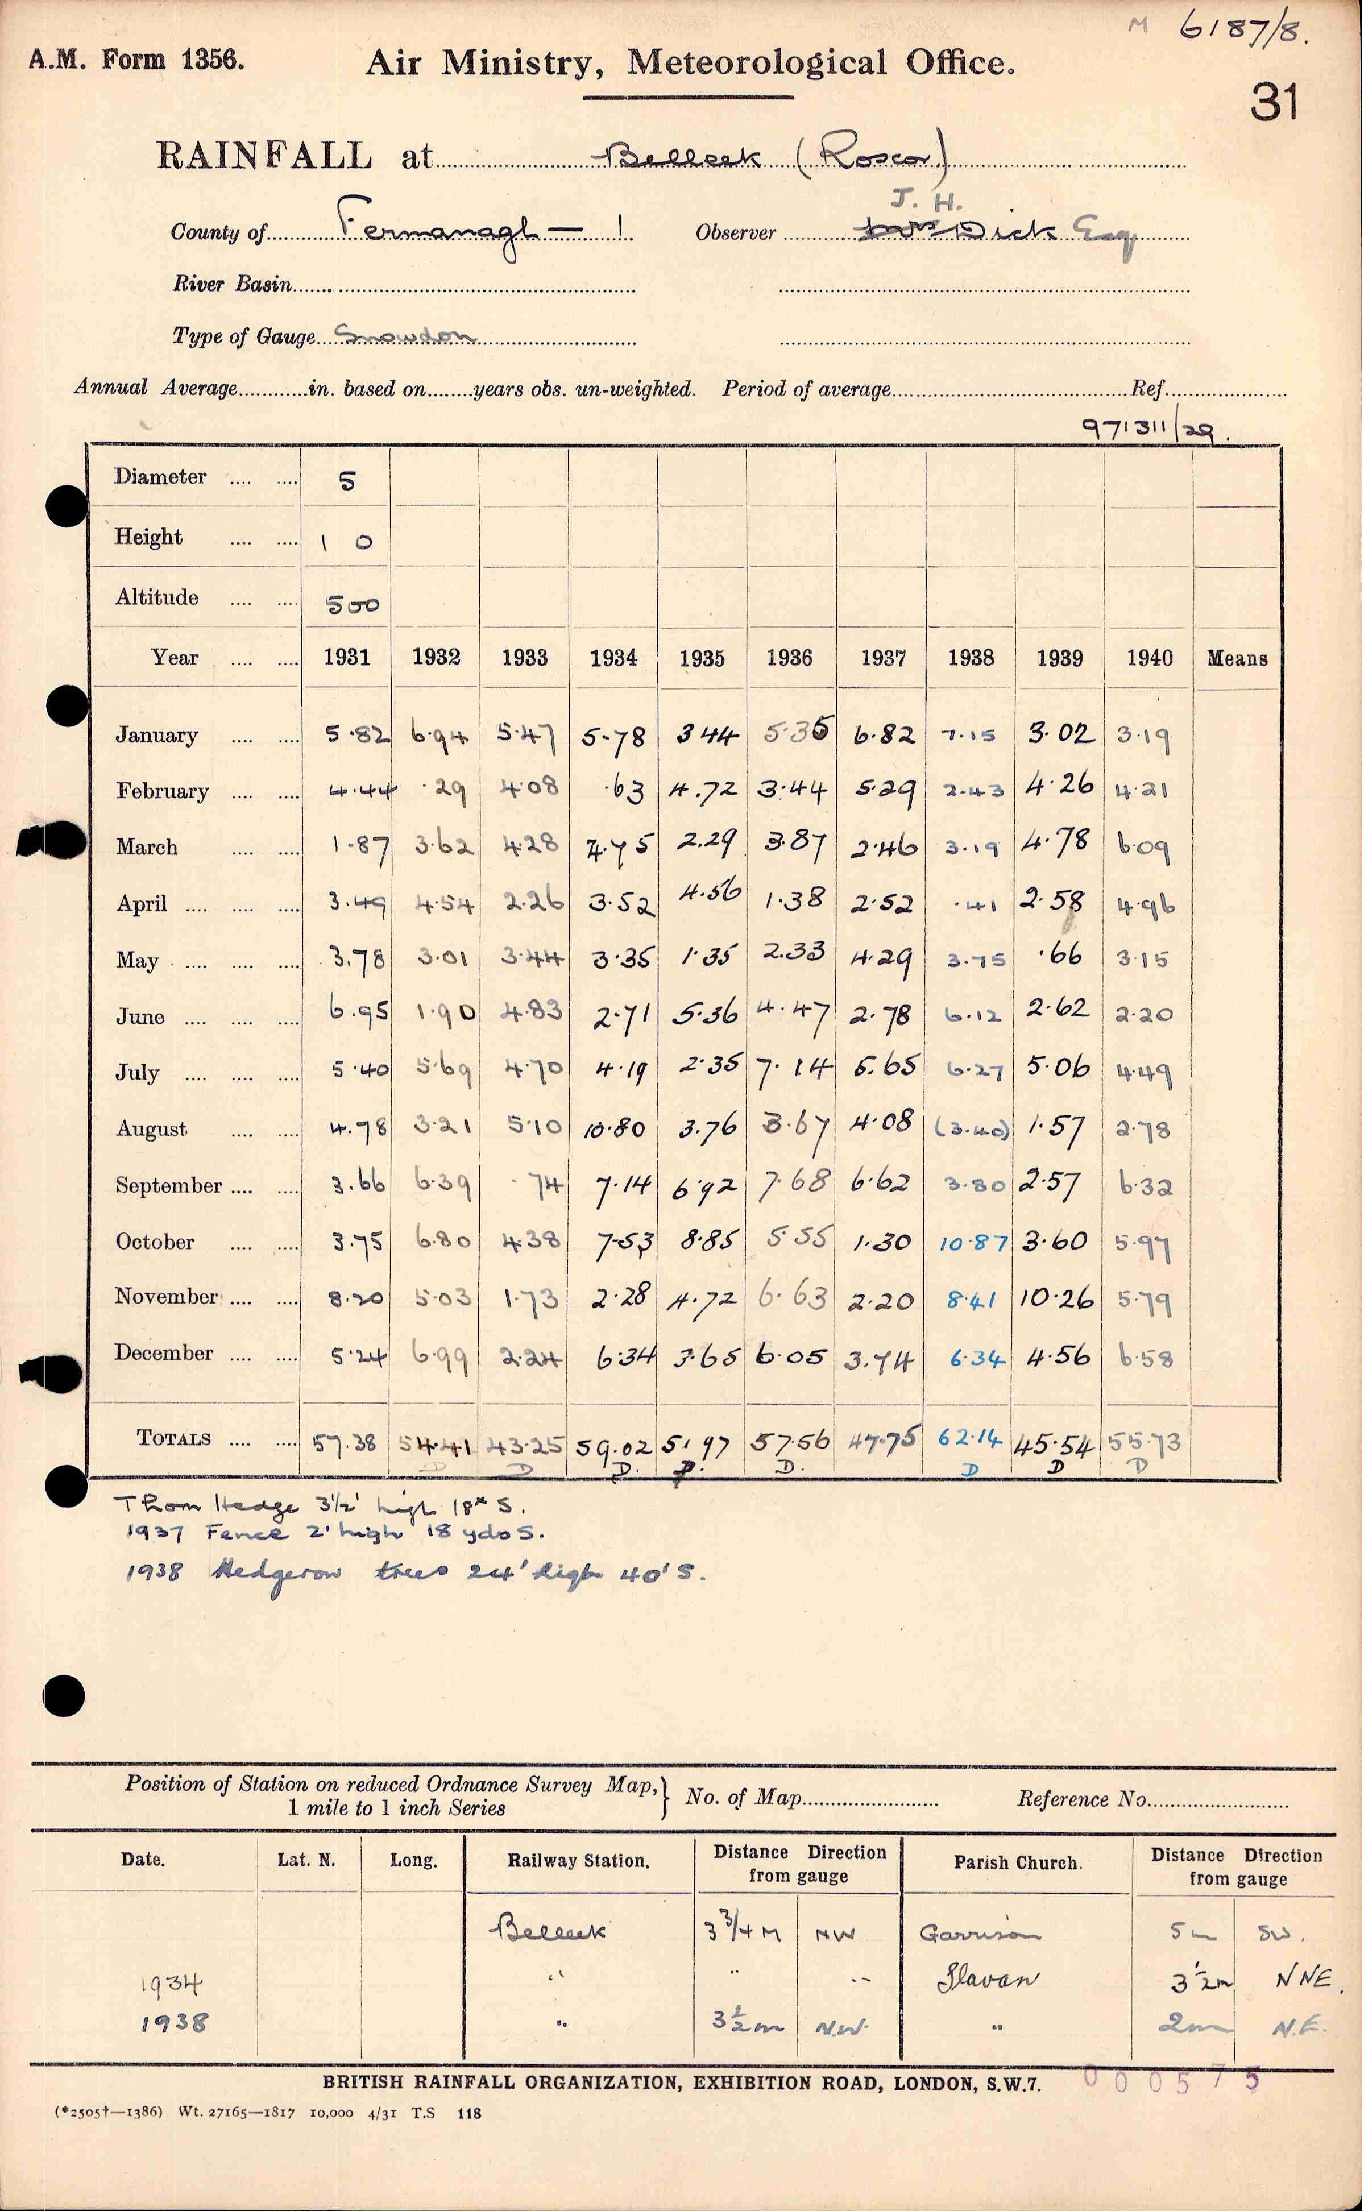 M 6187/8.
A.M. Form 1356. Air Ministry, Meteorological Office.
31
RAINFALL at Belleek (Roscor)
J. H.
County of Fermanagh — 1 Observer Mrs Dick Esq
River Basin
Type of Gauge Snowdon
Annual Average............in. based on........years obs. un-weighted. Period of average........ Ref.........
971311/29.
Diameter .... .... 5
Height .... .... 1 0
Altitude .... .... 500
Year .... .... 1931 1932 1933 1934 1935 1936 1937 1938 1939 1940 Means
January .... .... 5.82 6.94 5.47 5.78 3.44 5.35 6.82 7.15 3.02 3.19
February .... .... 4.44 .29 4.08 .63 4.72 3.44 5.29 2.43 4.26 4.21
March .... .... 1.87 3.62 4.28 4.75 2.29 3.87 2.46 3.19 4.78 6.09
April .... .... .... 3.49 4.54 2.26 3.52 4.56 1.38 2.52 .41 2.58 4.96
May .... .... .... 3.78 3.01 3.44 3.35 1.35 2.33 4.29 3.75 .66 3.15
June .... .... .... 6.95 1.90 4.83 2.71 5.36 4.47 2.78 6.12 2.62 2.20
July .... .... .... 5.40 5.69 4.70 4.19 2.35 7.14 5.65 6.27 5.06 4.49
August .... .... 4.78 3.21 5.10 10.80 3.76 3.67 4.08 (3.40) 1.57 2.78
September .... .... 3.66 6.39 .74 7.14 6.92 7.68 6.62 3.80 2.57 6.32
October .... .... 3.75 6.80 4.38 7.53 8.85 5.55 1.30 10.87 3.60 5.97
November .... .... 8.20 5.03 1.73 2.28 4.72 6.63 2.20 8.41 10.26 5.79
December .... .... 5.24 6.99 2.24 6.34 3.65 6.05 3.74 6.34 4.56 6.58
TOTALS .... .... 57.38 54.41 43.25 59.02 51.97 57.56 47.75 62.14 45.54 55.73
D D D. D. D. D D D
Thorn Hedge 3½' high 18" S.
1937 Fence 2' high 18 yds S.
1938 Hedgerow trees 24' high 40' S.
Position of Station on reduced Ordnance Survey Map, } No. of Map........ Reference No........
1 mile to 1 inch Series
Date. Lat. N. Long. Railway Station. Distance from gauge Direction Parish Church. Distance from gauge Direction
Belleek 3¾ M NW Garrison 5m SW.
1934 " " " Slavan 3½m NNE.
1938 " 3½m N.W. " 2m N.E.
BRITISH RAINFALL ORGANIZATION, EXHIBITION ROAD, LONDON, S.W.7. 000575
(*2505†—1386) Wt. 27165—1817 10,000 4/31 T.S 118